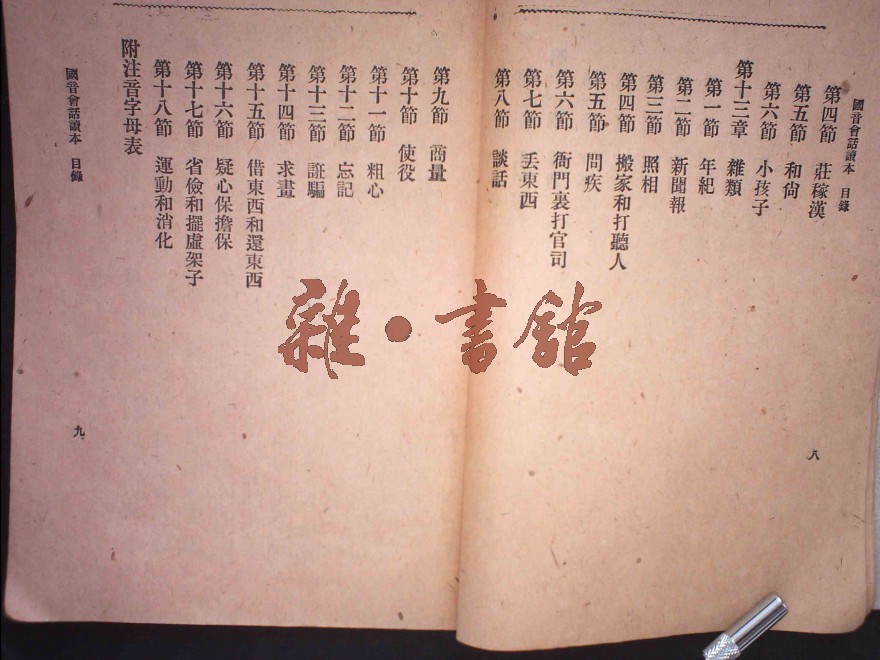 國音會話讀本 目錄
第四節 莊稼漢
第五節 和尙
第六節 小孩子
第十三章 雜類
第一節 年紀
第二節 新聞報
第三節 照相
第四節 搬家和打聽人
第五節 問疾
第六節 衙門裏打官司
第七節 丢東西
第八節 談話
八
第九節 商量
第十節 使役
第十一節 粗心
第十二節 忘記
第十三節 誑騙
第十四節 求畫
第十五節 借東西和還東西
第十六節 疑心保擔保
第十七節 省儉和擺虛架子
第十八節 運動和消化
附注音字母表
國音會話讀本 目錄
九
雜·書館